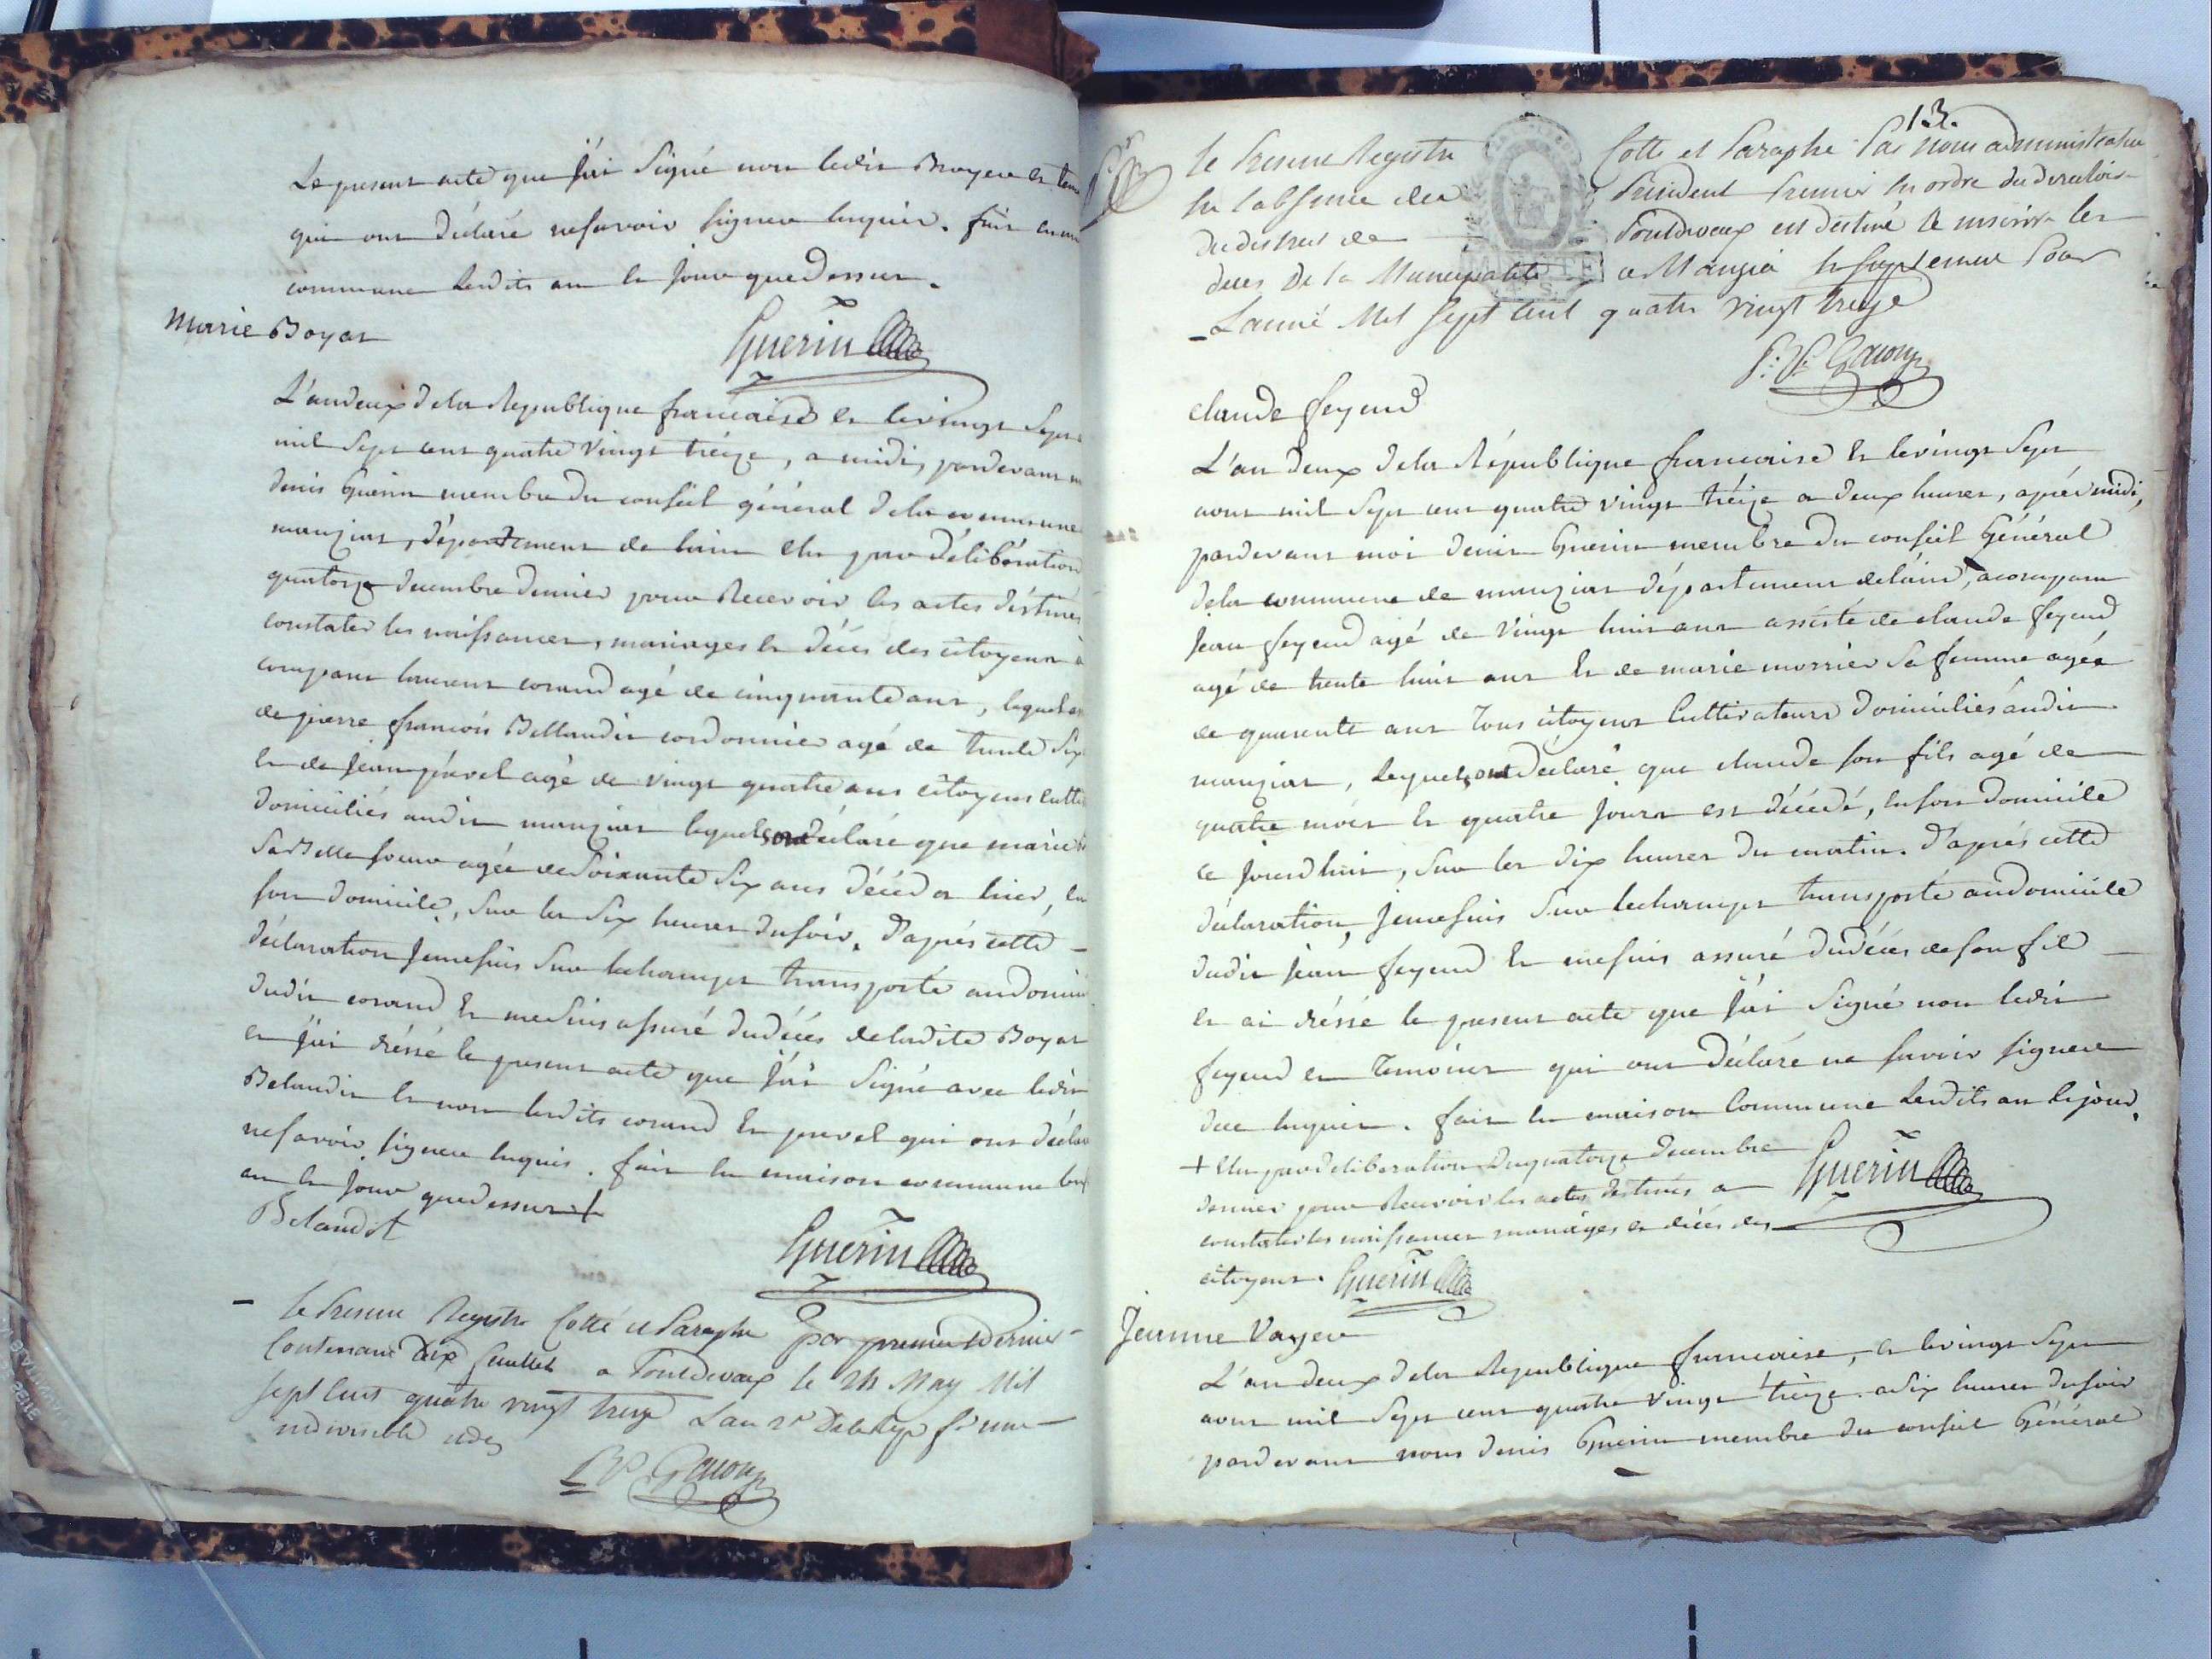 Le present acte que j'ai signé non ledit Broyer et tem
qui ont déclaré nesavoir signer enquis. fait en m
commune lesdits an et jour quedessus.
Marie Boyat
Guerin
L'andeux dela Republique francaise et levingt sept
mil sept cent quatre vingt treize, a midi, pardevant m
denis Guerin membre du conseil général dela commune
manziat, département de lain elu par délibération
quatorze decembre dernier pour Recevoir les actes déstinés
constater les naissances, mariages et décès des citoyens a
comparu laurent corand agé de cinquante ans, lequel as
de pierre francois Bellaudit cordonnier agé de trente six
et de jean prevel agé de vingt quatre ans citoyens culti
domiciliés audit manziat lequels ont déclaré que marie B
sa Belle soeur agée de soixante six ans décéda hier, en
son domicile, sur les six heures dusoir. D'après cette
déclaration jemesuis sur lechamps transporté audomici
dudit corand et mesuis assuré dudécès deladite Boyat
et j'ai dréssé le present acte que j'ai signé avec ledit
Belaudit et non lesdits corand et prevel qui ont déclar
nesavoir signer enquis. fait en maison commune les
an et jour quedessus
Belaudit
Guerin
le Present Registre Cotté et Paraphé par premier et dernier
Contenant dix feuillets a Pontdevaux le 24 May Mil
sept Cent quatre vingt treize L'an 2e De la Rep fse une
indivisible
Gacon
13.
le Present Registre Cotté et Paraphé Par Nous administrateur
en l'absence du President Premier en ordre du Directoire
du district de Pontdevaux est destiné a inscrire les
deces De la Municipalité a Manzia en suplement Pour
L'anné Mil sept Cent quatre vingt treize
Gacon
claude feyeud
L'an deux dela République francaise et levingt sept
aout mil sept cent quatre vingt treize a deux heures, aprèsmidi,
pardevant moi denis Guerin membre du conseil Général
dela commune de manziat département delain, acomparu
jean feyeud agé de vingt huit ans assisté de claude feyeud
agé de trente huit ans et de marie morrier sa femme agée
de quarente ans tous citoyens Cultivateurs domiciliés audit
manziat, lequels ont déclaré que claude son fils agé de
quatre mois et quatre jours est décédé, en son domicile
ce jourd'hui, sur les dix heures du matin. D'après cette
déclaration, jemesuis sur lechamps transporté audomicile
dudit jean feyeud et mesuis assuré dudécès deson fils
et ai dréssé le present acte que j'ai signé non ledit
feyeud et temoins qui ont déclaré ne savoir signer
due enquis. fait en maison Commune lesdits an et jour.
+ elu par deliberation du quatorze decembre
dernier pour Recevoir les actes destinés a
constater les naissances mariages et décès des
citoyens. Guerin
Guerin
Jeanne Vayer
L'an deux dela Republique francaise, et levingt sept
aout mil sept cent quatre vingt treize. a six heures dusoir
pardevant nous denis Guerin membre du conseil Général